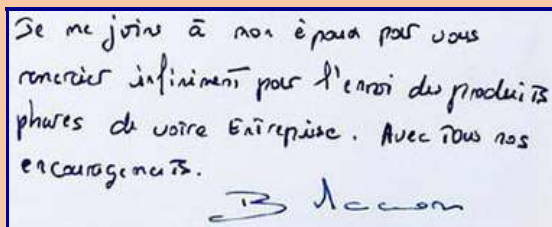 Je me joins à mon époux pour vous
remercier infiniment pour l'envoi des produits
phares de votre Entreprise. Avec tous nos
encouragements.
B Macron